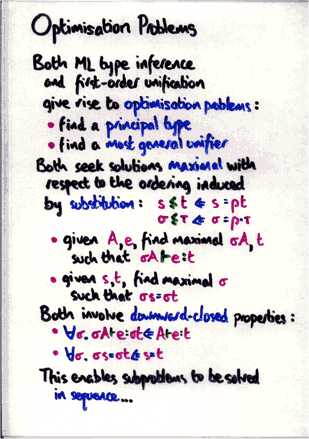 Optimisation Problems
Both ML type inference
and first-order unification
give rise to optimisation poblems:
• find a principal type
• find a most general unifier
Both seek solutions maximal with
respect to the ordering induced
by substitution: s ≤ t ⇐ s = ρt
σ ≤ τ ⇐ σ = ρ·τ
• given A,e, find maximal σA,t
such that σA⊢e:t
• given s,t, find maximal σ
such that σs=σt
Both involve downward-closed properties:
• ∀σ. σA⊢e:σt⇐A⊢e:t
• ∀σ. σs=σt⇐s=t
This enables subproblems to be solved
in sequence...